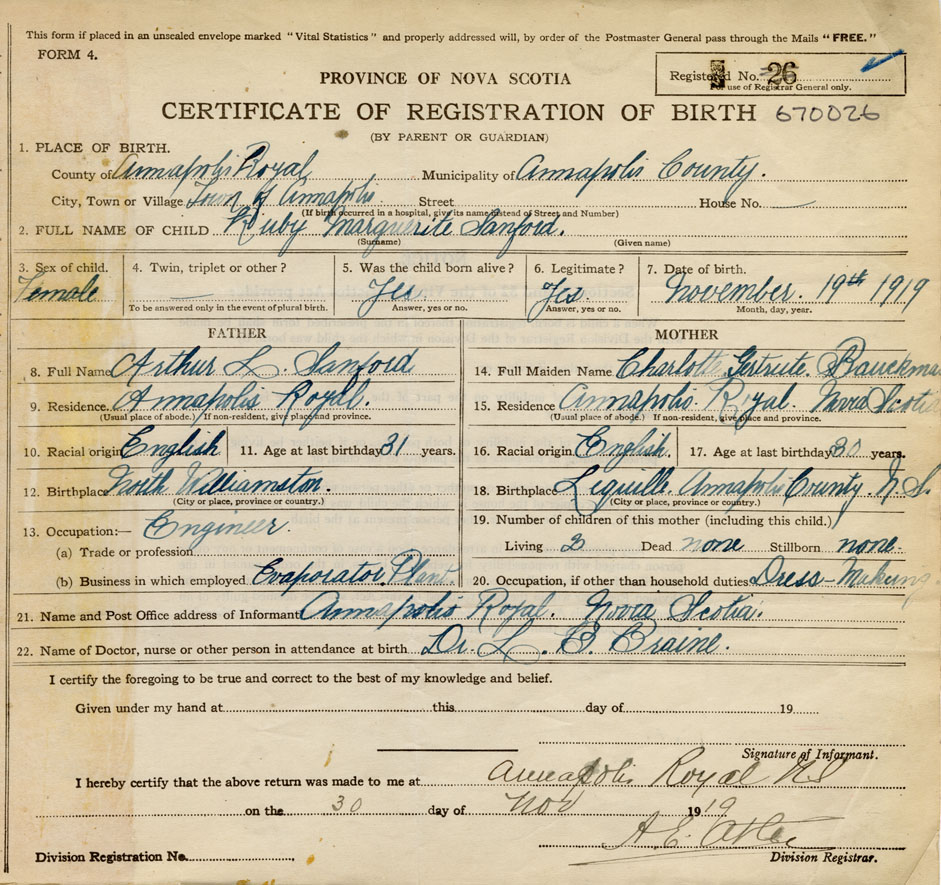 This form if placed in an unsealed envelope marked "Vital Statistics" and properly addressed will, by order of the Postmaster General pass through the Mails "FREE."
FORM 4.
PROVINCE OF NOVA SCOTIA
Registered No. 26
For use of Registrar General only.
CERTIFICATE OF REGISTRATION OF BIRTH 670026
(BY PARENT OR GUARDIAN)
1. PLACE OF BIRTH.
County of Annapolis Royal Municipality of Annapolis County.
City, Town or Village Town of Annapolis Street House No. —
(If birth occurred in a hospital, give its name instead of Street and Number)
2. FULL NAME OF CHILD Ruby Marguerite Sanford.
(Surname) (Given name)
3. Sex of child. 4. Twin, triplet or other? 5. Was the child born alive? 6. Legitimate? 7. Date of birth.
Female — Yes. Yes. November. 19th 1919
To be answered only in the event of plural birth. Answer, yes or no. Answer, yes or no. Month, day, year.
FATHER MOTHER
8. Full Name Arthur L. Sanford 14. Full Maiden Name Charlott Gertrute Bauckman
9. Residence. Annapolis Royal. 15. Residence Annapolis Royal Nova Scotia
(Usual place of abode.) If non-resident, give place and province. (Usual place of abode.) If non-resident, give place and province.
10. Racial origin English 11. Age at last birthday 31 years. 16. Racial origin English. 17. Age at last birthday 30 years.
12. Birthplace North Williamston. 18. Birthplace Lequille Annapolis County N.S.
(City or place, province or country.) (City or place, province or country.)
13. Occupation:— Engineer. 19. Number of children of this mother (including this child.)
(a) Trade or profession Living 2 Dead none Stillborn none-
(b) Business in which employed Evaporator Plant 20. Occupation, if other than household duties Dress-Making
21. Name and Post Office address of Informant Annapolis Royal. Nova Scotia.
22. Name of Doctor, nurse or other person in attendance at birth Dr. L. B. Braine.
I certify the foregoing to be true and correct to the best of my knowledge and belief.
Given under my hand at this day of 19
Signature of Informant.
I hereby certify that the above return was made to me at Annapolis Royal NS
on the 30 day of Nov 1919
A. E.
Division Registration No. Division Registrar.